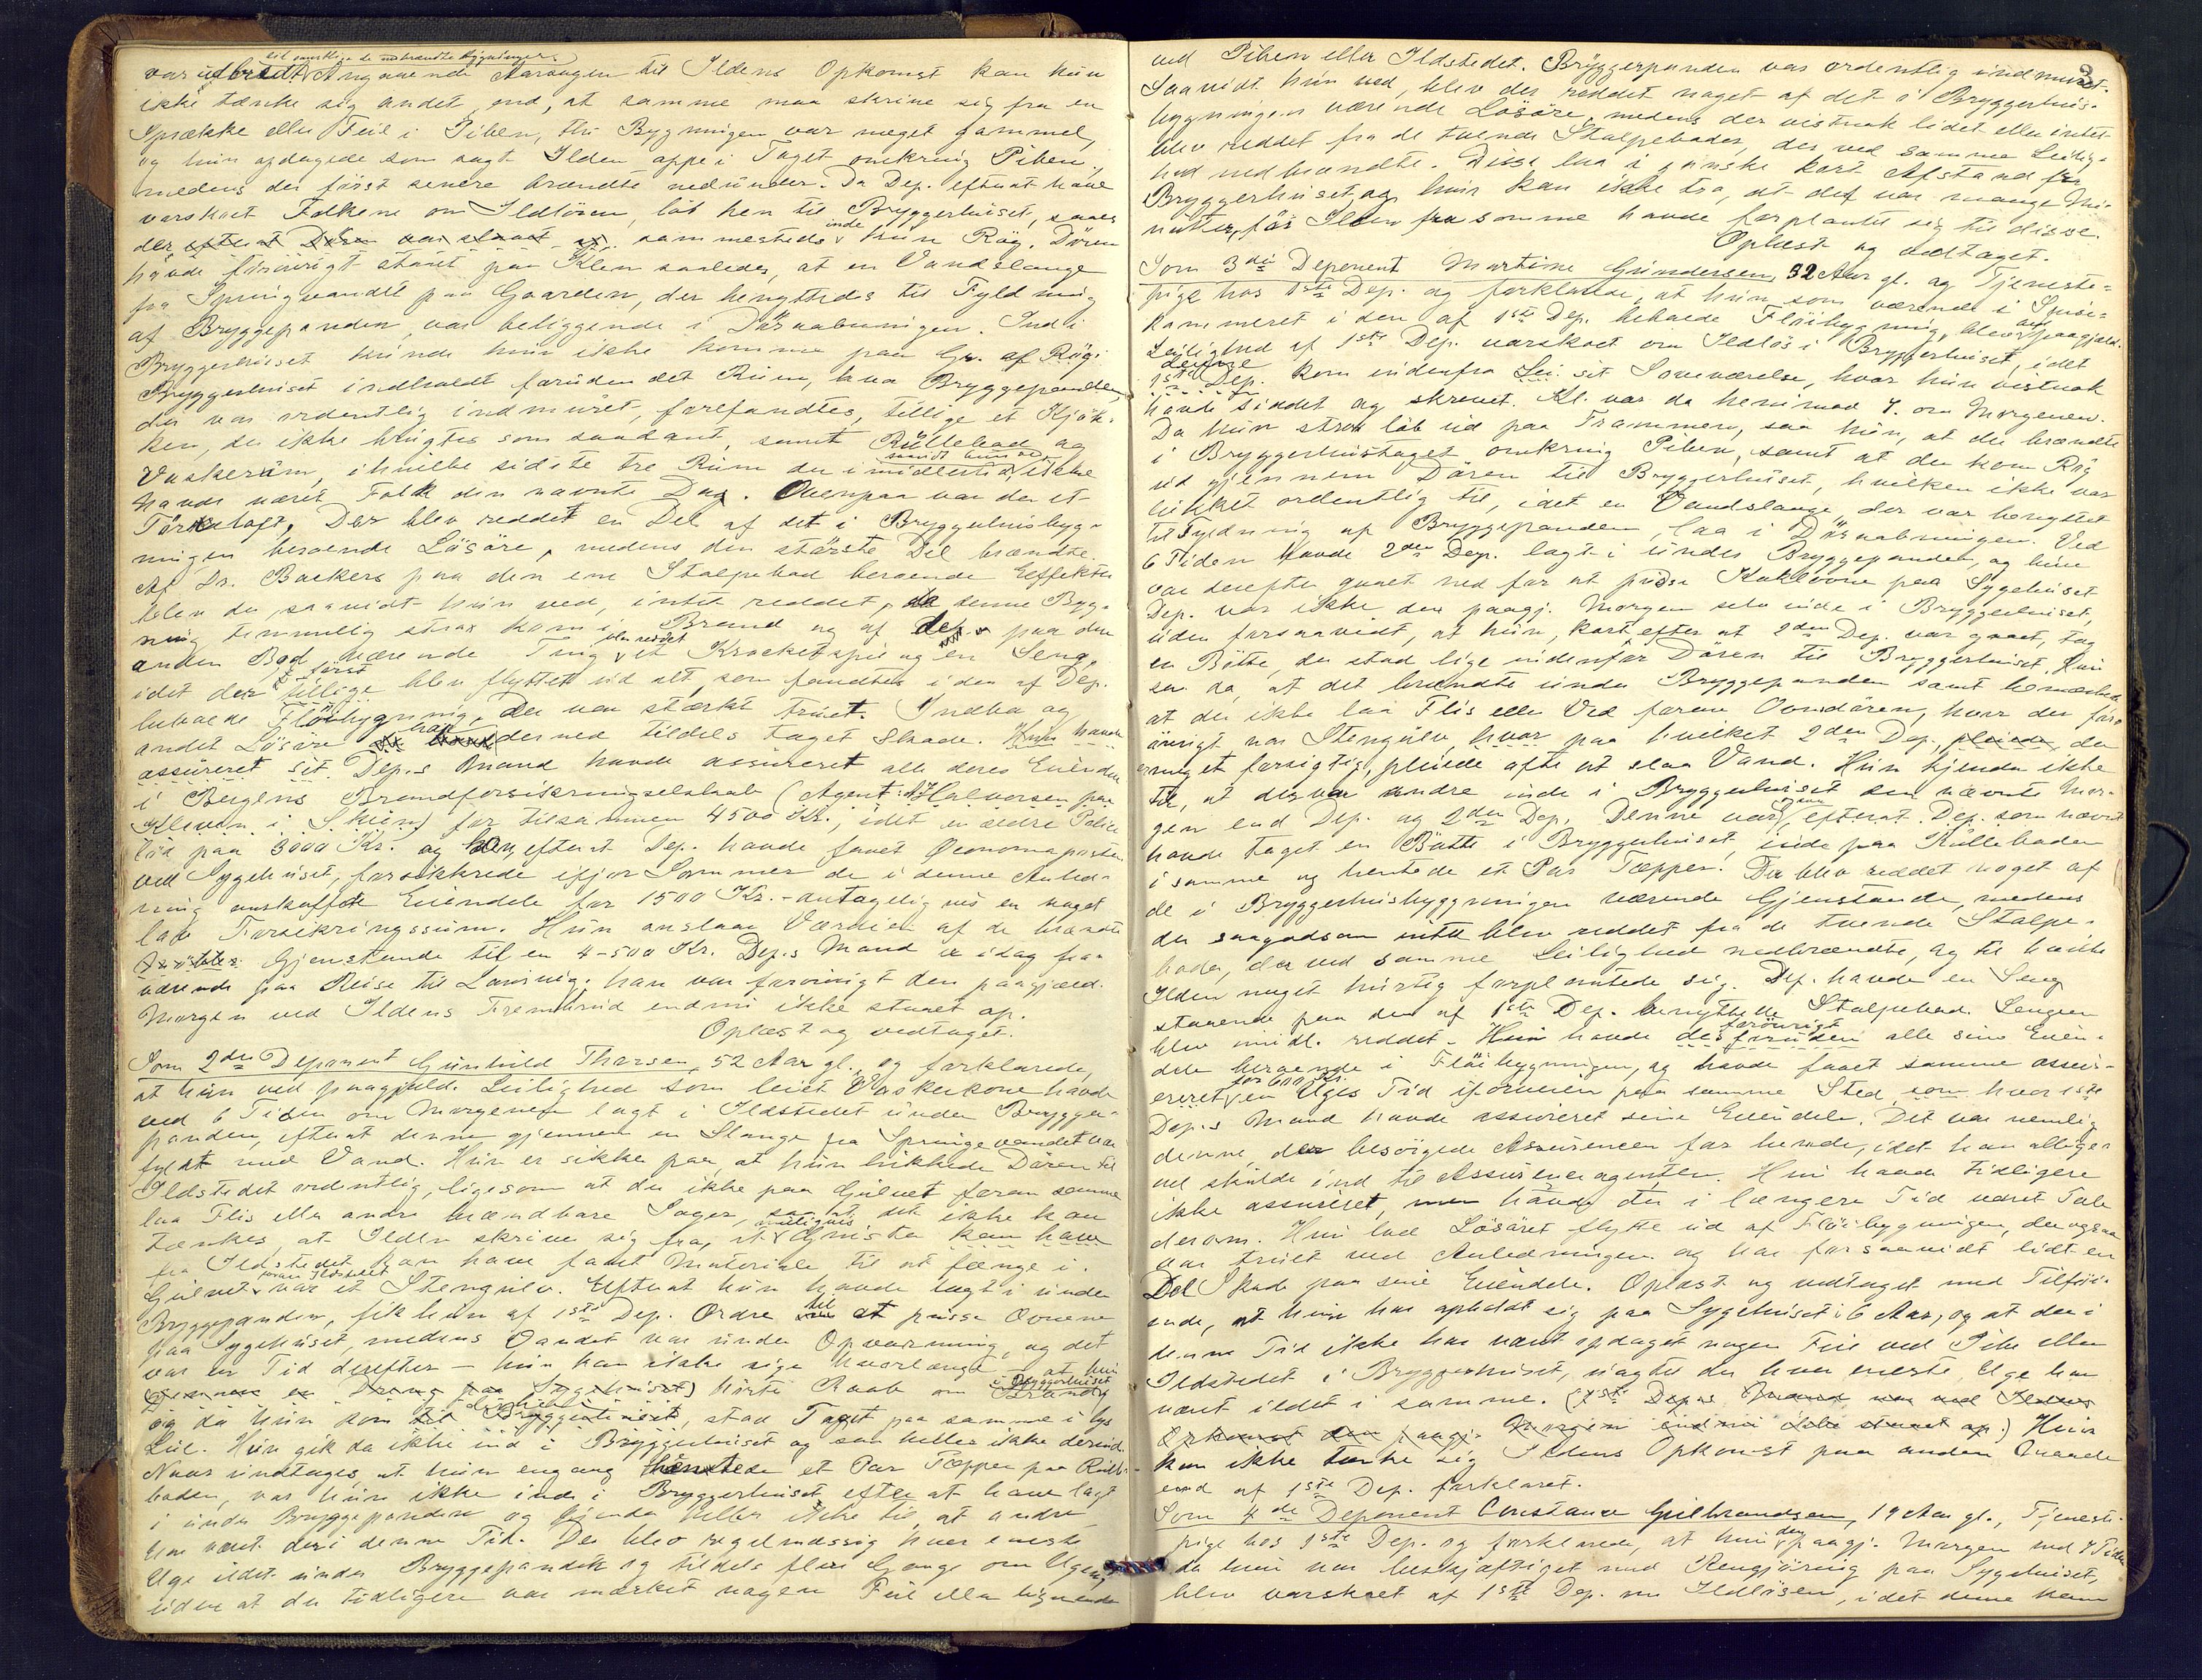 til samtlige de nedbrændte Bygninger
var udbredt. Angaaende Aarsagen til Ildens Opkomst kan hun
ikke tænke sig andet end, at samme maa skrive sig fra en
Sprække eller Feil i Piben, thi Bygningen var meget gammel,
og hun opdagede som sagt Ilden oppe i Taget omkring Piben,
medens det først senere brændte nedunder. Da Dep. efterat have
varskoet Folkene om Ildløsen, løb hen til Bryggerhuset, saaes
der efterat Døren var aabnet af sammesteds inde hun Røg. Døren
havde forøvrigt staaet paa Klem saaledes, at en Vandslange
fra Springvandet paa Gaarden, der benyttedes til Fyldning
af Bryggepanden, var beliggende i Døraabningen. Ind i
Bryggerhuset kunde hun ikke komme paa Gr. af Røg.
Bryggerhuset indholdt foruden det Rum, hvor Bryggepanden,
der var ordentlig indmuret, forefandtes, tillige et Kjøk-
ken, der ikke brugtes som saadant, samt Rullebod og
Vaskerum, i hvilke sidste tre Rum der imidlertid, saavidt hun ved, ikke
havde været Folk den nævnte Dag. Ovenpaa var der et
Tørkeloft. Der blev reddet en Del af det i Bryggerhusbyg-
ningen beroende Løsøre, medens den største Del brændte.
Af Dr. Backers paa den ene Stolpebod beroende Effekter
blev der, saavidt hun ved, intet reddet, da denne Byg-
ning temmelig strax kom i Brand og af de paa den
anden Bod værende Ting blev reddet et Krocketspil og en Seng,
idet der først tillige blev flyttet ud alt, som fandtes i den af Dep.
beboede Fløibygning. Der var stærkt truet. Indbo og
andet Løsøre har derved tildels taget Skade. Hun havde
assureret sit Dep.s Mand havde assureret alle deres Eiendele
i Bergens Brandforsikringselskab (Agent: Halvorsen paa
Kleven i Skien) for tilsammen 4500 Kr., idet en ældre Police
lød paa 3000 Kr. og han, efterat Dep. havde faaet Økonomaposten
ved Sygehuset, forsikkrede ifjor Sommer de i denne Anled-
ning anskaffede Eiendele for 1500 Kr. - antagelig vis en noget
lav Forsikringssum. Hun anslaar Værdien af de brændte
Gjenstande til en 4-500 Kr. Dep.s Mand er idag fra-
værende paa Reise til Laurvig; han var forøvrigt den paagjæld.
Morgen ved Ildens Frembrud endnu ikke staaet op.
Oplæst og vedtaget.
Som 2den Deponent Gunhild Thorsen, 52 Aar gl., og forklarede,
at hun ved paagjæld. Leilighed som leiet Vaskekone havde
ved 6 Tiden om Morgenen lagt i Ildstedet under Brygge-
panden, efterat denne gjennem en Slange fra Springvandet var
fyldt med Vand. Hun er sikker paa, at hun lukkede Døren til
Ildstedet ordentlig, ligesom at der ikke paa Gulvet foran samme
laa Flis eller andre brændbare Sager, saa at det ikke kan
tænkes, at Ilden skriver sig fra, at muligens Gnister kan have
fra Ildstedet kan have faaet Materiale til at fænge i.
Gulvet foran Ildstedet var et Stengulv. Efterat hun havde lagt i under
Bryggepanden, fik hun af 1ste Dep. Ordre til at pudse Ovnene
paa Sygehuset, medens Vandet var under Opvarmning, og det
var en Tid derefter — hun kan ikke sige hvorlænge — at hun
(Dreng paa Sygehuset) hørte Raab om Brand i Bryggerhuset
og da hun kom til Bryggerhuset, stod Taget paa samme i lys
Lue. Hun gik da ikke ind i Bryggerhuset og saa heller ikke derind.
Naar undtages, at hun engang hentede et Par Tæpper paa Rulle-
boden, var hun ikke inde i Bryggerhuset efter at have lagt
i under Bryggepanden og kjender heller ikke til, at andre
har været der i denne Tid. Der blev regelmæssig hver eneste
Uge ildet under Bryggepanden og tildels flere Gange om Ugen,
uden at der tidligere var mærket nogen Feil eller lignende
3
ved Piben eller Ildstedet. Bryggerpanden var ordentlig indmuret.
Saavidt hun ved, blev der reddet noget af det i Bryggerhus-
bygningen værende Løsøre, medens der vistnok lidet eller intet
blev reddet fra de tvende Stolpeboder, der ved samme Leilig-
hed nedbrændte. Disse laa i ganske kort Afstand fra
Bryggerhuset, og hun kan ikke tro, at det var mange Mi-
nutter, før Ilden fra samme havde forplantet sig til disse.
Oplæst og vedtaget.
Som 3die Deponent Martine Gundersen, 32 Aar gl. og Tjeneste-
pige hos 1ste Dep. og forklarede, at hun som værende i Spise-
kammeret i den af 1ste Dep. beboede Fløibygning, blev ved paagjæld.
Leilighed af 1ste Dep. varskoet om Ildløs i Bryggerhuset, idet
1ste Dep. kom indenfra sit Soveværelse, hvor hun vistnok
havde siddet og skrevet. Kl. var da henimod 7. om Morgenen.
Da hun strax løb ud paa Trammen, saa hun, at det brændte
i Bryggerhustaget omkring Piben, samt at der kom Røg
ud gjennem Døren til Bryggerhuset, hvilken ikke var
lukket ordentlig til, idet en Vandslange, der var benyttet
til Fyldning af Bryggepanden, laa i Døraabningen. Ved
6 Tiden havde 2den Dep. lagt i under Bryggepanden, og hun
var derefter gaaet ned for at pudse Kakkelovne paa Sygehuset.
Dep. var ikke den paagj. Morgen selv inde i Bryggerhuset,
uden forsaavidt, at hun, kort efter at 2den Dep. var gaaet, tog
en Bøtte, der stod lige indenfor Døren til Bryggerhuset. Hun
saa da, at det brændte under Bryggepanden samt bemærkede
at der ikke laa Flis eller Ved foran Ovndøren, hvor der for-
øvrigt var Stengulv, hvor paa hvilket 2den Dep., pleiede der
er meget forsigtig, pleiede ofte at slaa Vand. Hun kjender ikke
til, at der var andre inde i Bryggerhuset den nævnte Mor-
gen end Dep. og 2den Dep. Denne var, efterat Dep. som nævnt
havde taget en Bøtte i Bryggerhuset, inde paa Rulleboden
i samme og hentede et Par Tæpper. Der blev reddet noget af
de i Bryggerhusbygningen værende Gjenstande, medens
der saagodtsom intet blev reddet fra de tvende Stolpe-
boder, der ved samme Leilighed nedbrændte, og til hvilke
Ilden meget hurtig forplantede sig. Dep. havde en Seng
staaende paa den af 1ste Dep. benyttede Stolpebod. Sengen
blev imidl. reddet. Hun havde desforuden forøvrigt alle sine Eien-
dele beroende i Fløibygningen, og havde faaet samme assu-
reret for 600 Kr. en Uges Tid iforveien paa samme Sted, som hvor 1ste
Dep.s Mand havde assureret sine Eiendele. Det var nemlig
denne, der besørgede Assurancen for hende, idet han allige-
vel skulde ind til Assuranceagenten. Hun havde tidligere
ikke assureret, men havde der i længere Tid været Tale
derom. Hun lod Løsøret flytte ud af Fløibygningen, der ogsaa
var truet ved Anledningen og har forsaavidt lidt en
Del Skade paa sine Eiendele. Oplæst og vedtaget med Tilføi-
ende, at hun har opholdt sig paa Sygehuset i 6 Aar, og at der i
denne Tid ikke har været opdaget nogen Feil ved Pibe eller
Ildstedet i Bryggerhuset, uagtet der hver eneste Uge har
været ildet i samme. (1ste Dep.s Mand var ved Ildens
Opkomst den paagj. Morgen endnu ikke staaet op.) Hun
kan ikke tænke sig Ildens Opkomst paa anden Maade
end af 1ste Dep. forklaret.
Som 4de Deponent Constance Gulbrandsen, 19 Aar gl., Tjeneste-
pige hos 1ste Dep. og forklarede, at hun den paagj. Morgen ved 7 Tiden
da hun var beskjæftiget med Rengjøring paa Sygehuset,
blev varskoet af 1ste Dep. om Ildløsen, idet denne kom